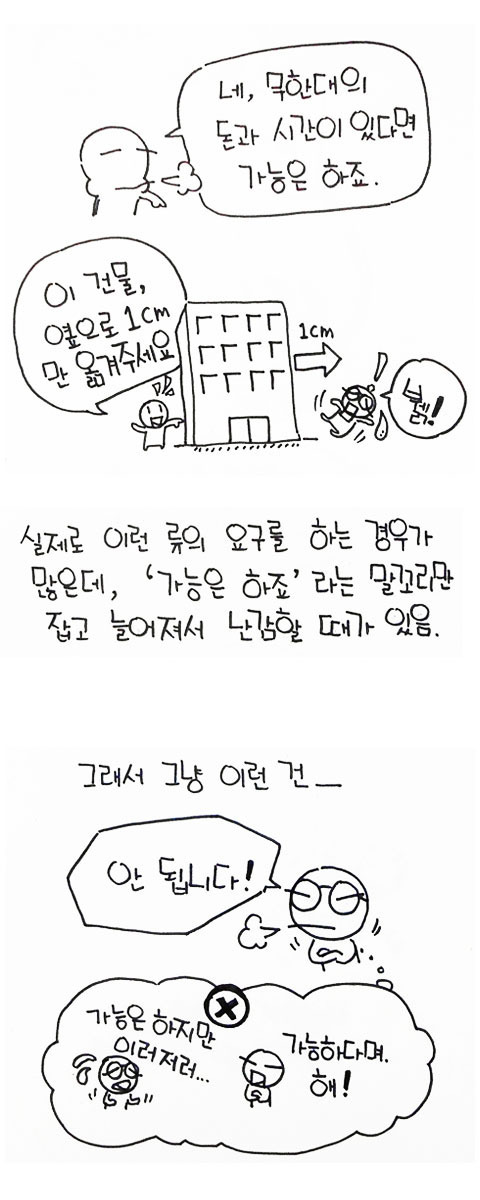 네, 무한대의
돈과 시간이 있다면
가능은 하죠.
이 건물,
옆으로 1cm
만 옮겨주세요
1cm
뉅!
실제로 이런 류의 요구를 하는 경우가
많은데, '가능은 하죠' 라는 말꼬리만
잡고 늘어져서 난감할 때가 있음.
그래서 그냥 이런 건_
안 됩니다!
가능은 하지만
이러저러...
가능하다며.
해!